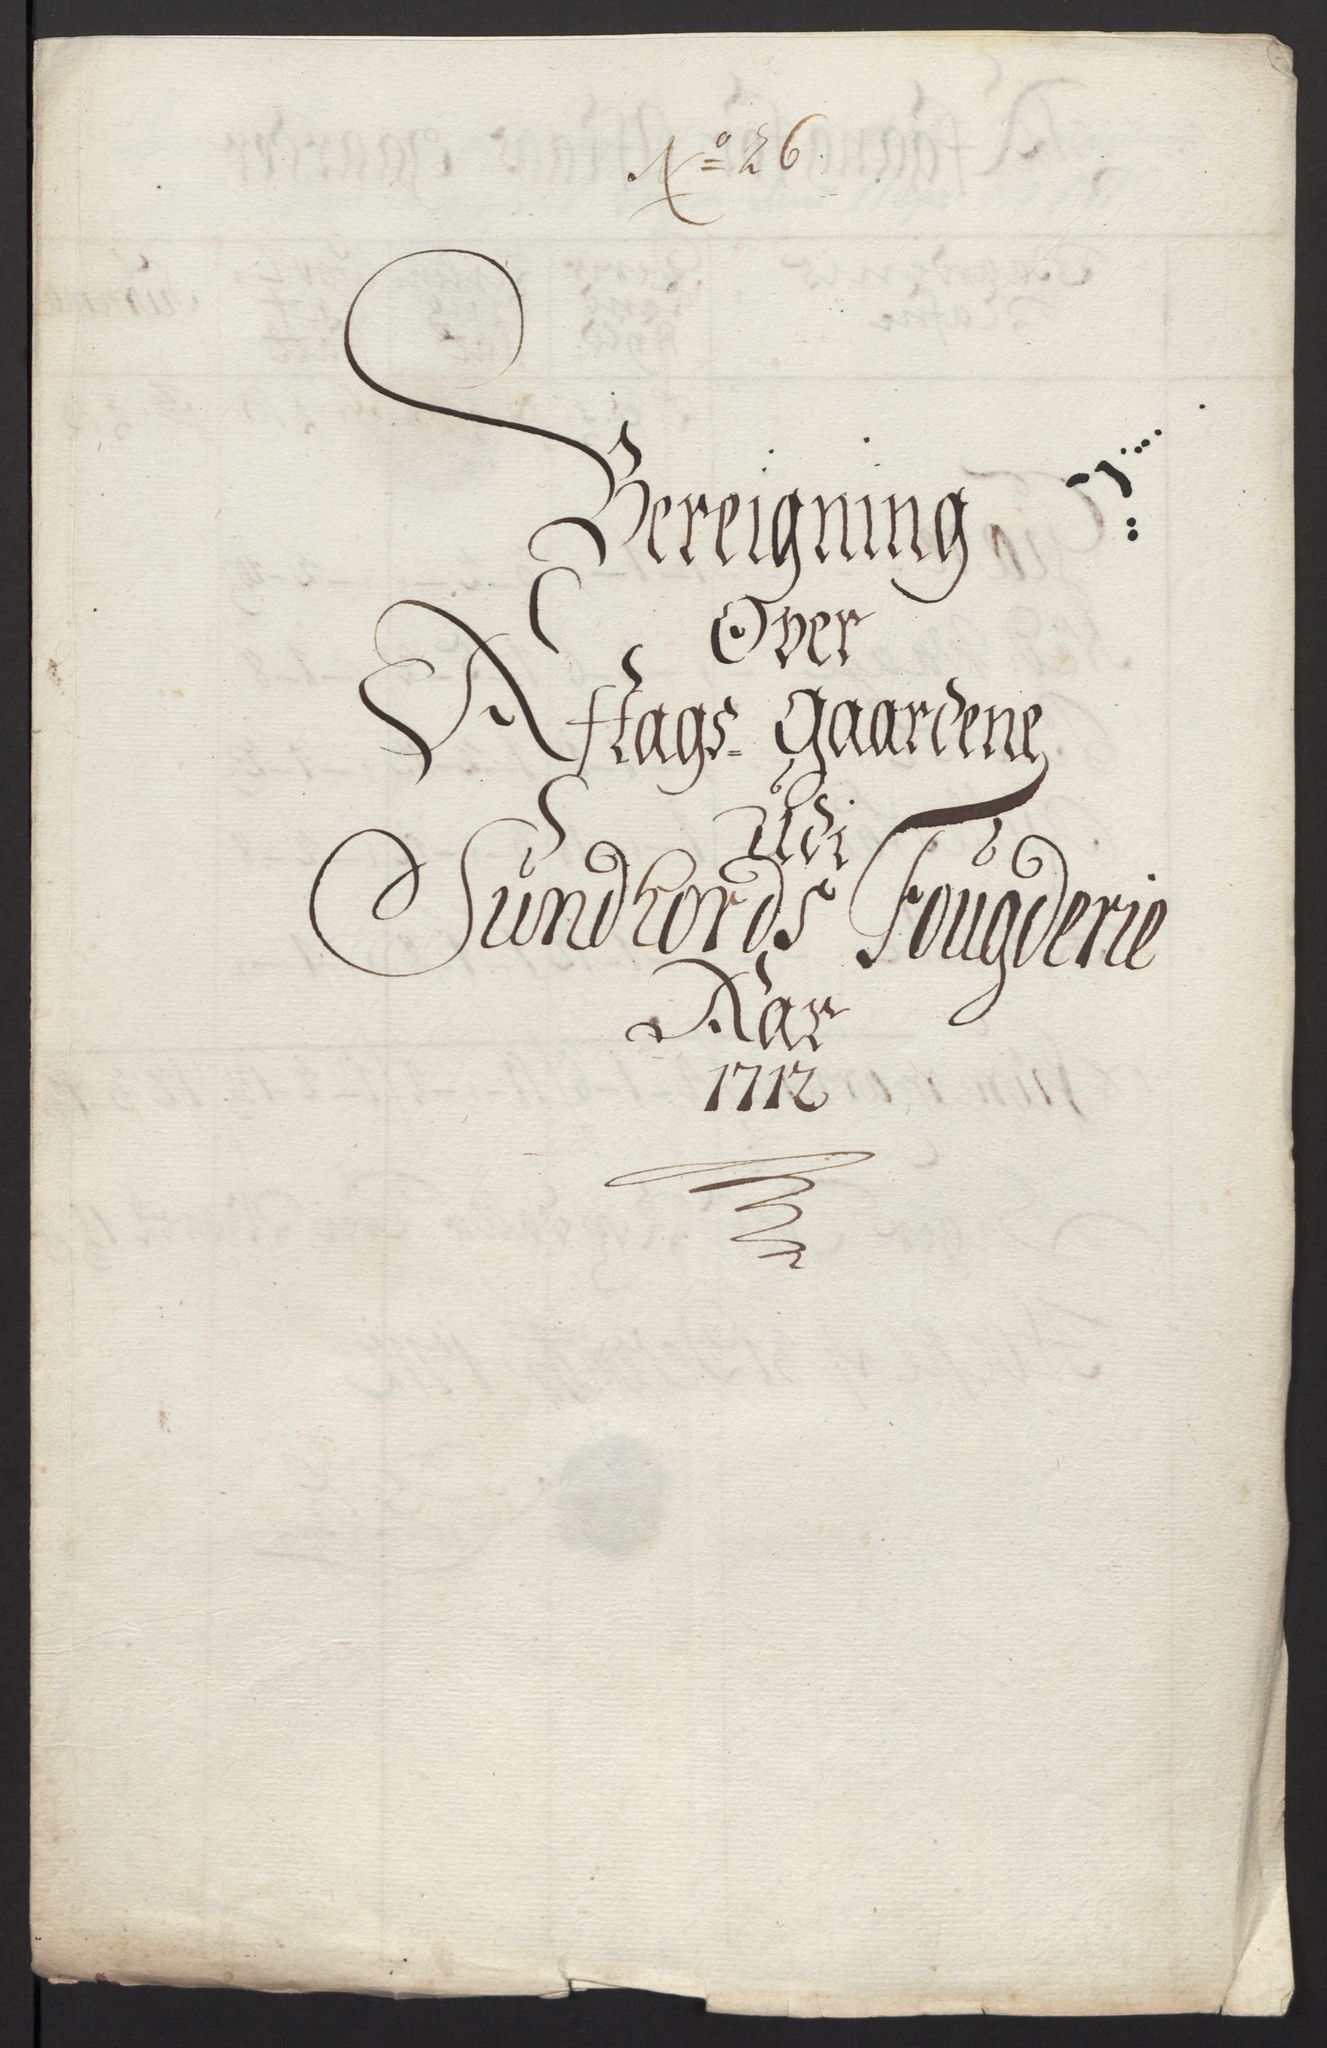 No 26.
Bereigning
Over
Aftags- Gaardene
Udi
Sundhords Fougderie
Aar
1712